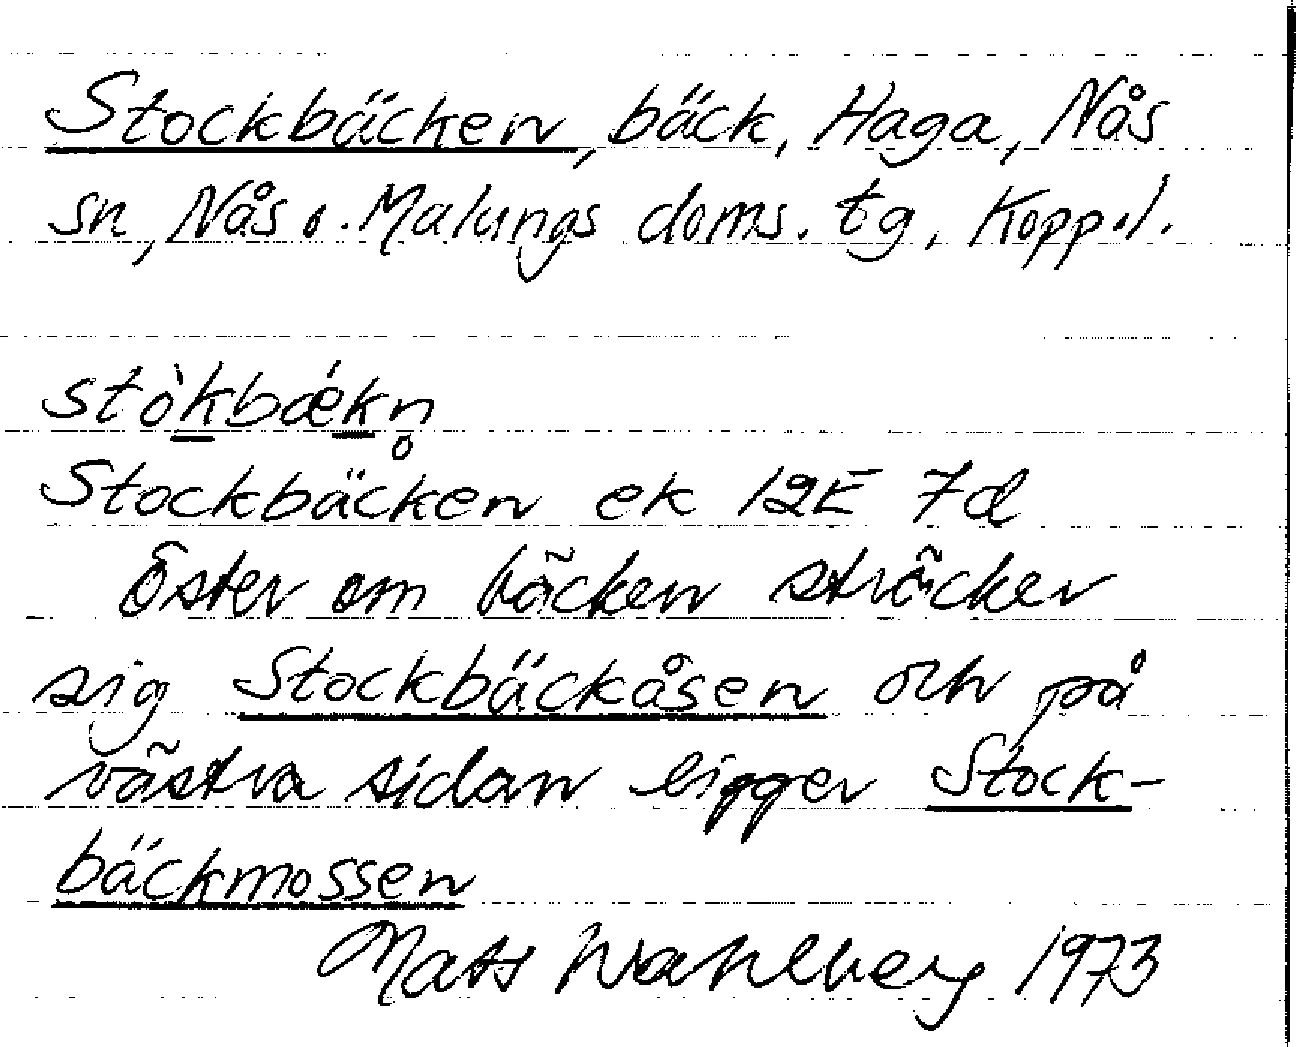 Stockbäcken, bäck, Haga, Nås
sn, Nås o. Malungs doms. tg, Kopp.l.
stòkbǽkn̥
Stockbäcken ek 12E 7d
Öster om bäcken sträcker
sig Stockbäckåsen och på
västra sidan ligger Stock-
bäckmossen
Mats Wahlberg 1973